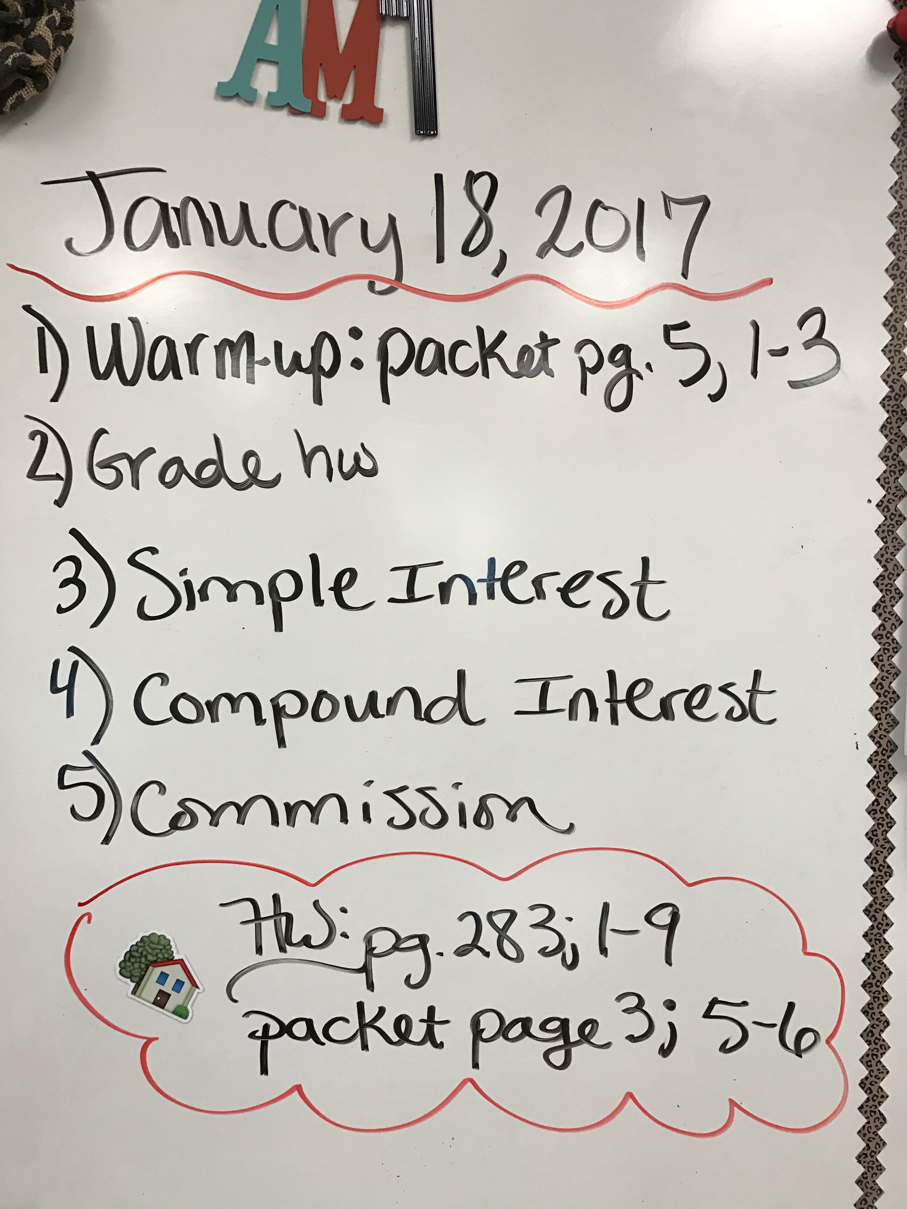 AM
January 18, 2017
1) Warm-up: packet pg. 5, 1-3
2) Grade hw
3) Simple Interest
4) Compound Interest
5) Commission
HW: pg. 283; 1-9
packet page 3; 5-6